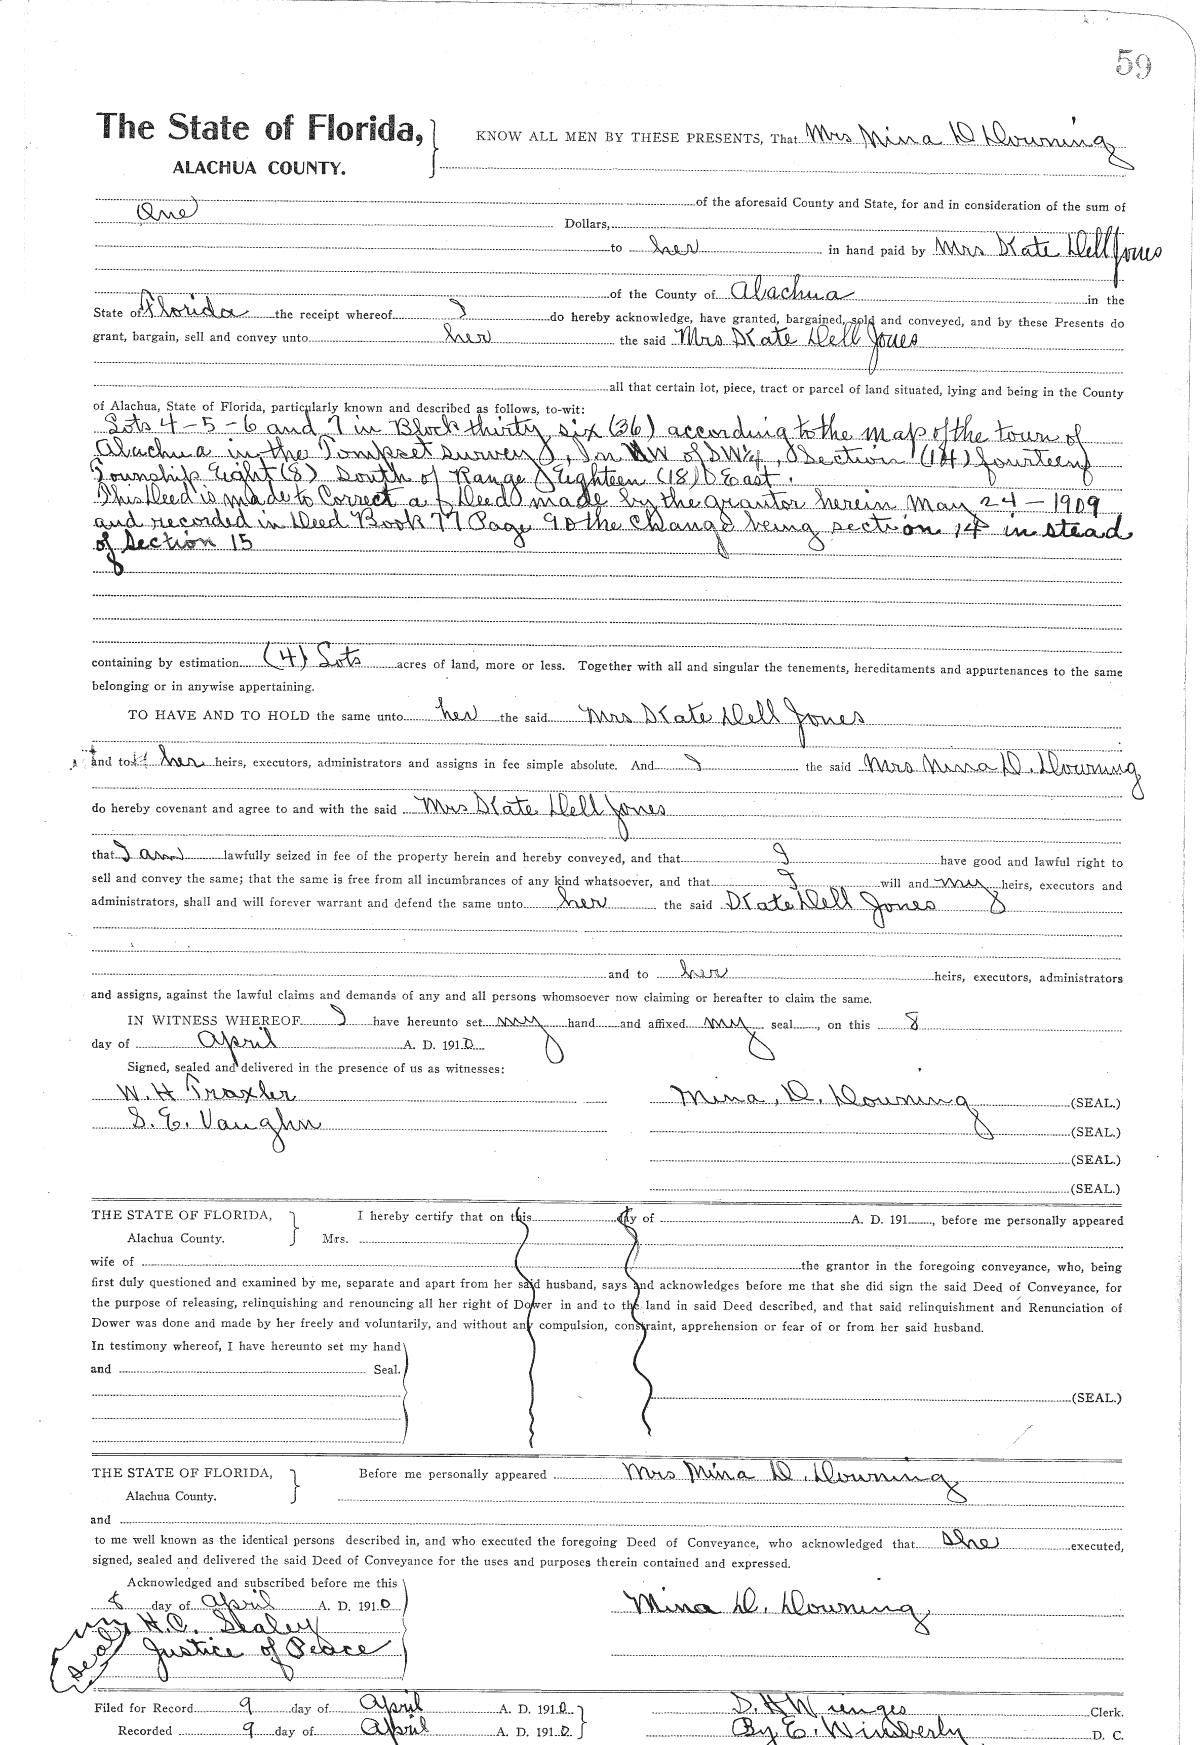 59
The State of Florida,
ALACHUA COUNTY.
KNOW ALL MEN BY THESE PRESENTS, That Mrs Nina D Downing
of the aforesaid County and State, for and in consideration of the sum of
One Dollars,
to her in hand paid by Mrs Kate Dell Jones
of the County of Alachua in the
State of Florida the receipt whereof I do hereby acknowledge, have granted, bargained, sold and conveyed, and by these Presents do
grant, bargain, sell and convey unto her the said Mrs Kate Dell Jones
all that certain lot, piece, tract or parcel of land situated, lying and being in the County
of Alachua, State of Florida, particularly known and described as follows, to-wit:
Lots 4-5-6 and 7 in Block thirty six (36) according to the map of the town of
Alachua in the Tompset survey, In NW of SW¼, Section (14) fourteen
Township Eight (8) South of Range Eighteen (18) East.
This Deed is made to Correct a Deed made by the grantor herein May 24-1909
and recorded in Deed Book 77 Page 90 the change being section 14 in stead
of Section 15
containing by estimation (4) Lots acres of land, more or less. Together with all and singular the tenements, hereditaments and appurtenances to the same
belonging or in anywise appertaining.
TO HAVE AND TO HOLD the same unto her the said Mrs Kate Dell Jones
and to her heirs, executors, administrators and assigns in fee simple absolute. And I the said Mrs Nina D. Downing
do hereby covenant and agree to and with the said Mrs Kate Dell Jones
that I am lawfully seized in fee of the property herein and hereby conveyed, and that I have good and lawful right to
sell and convey the same; that the same is free from all incumbrances of any kind whatsoever, and that I will and my heirs, executors and
administrators, shall and will forever warrant and defend the same unto her the said Kate Dell Jones
and to her heirs, executors, administrators
and assigns, against the lawful claims and demands of any and all persons whomsoever now claiming or hereafter to claim the same.
IN WITNESS WHEREOF I have hereunto set my hand and affixed my seal, on this 8
day of April A. D. 1910
Signed, sealed and delivered in the presence of us as witnesses:
W. H Traxler Mina. D. Downing (SEAL.)
S. E. Vaughn (SEAL.)
(SEAL.)
(SEAL.)
THE STATE OF FLORIDA, I hereby certify that on this day of A. D. 191 , before me personally appeared
Alachua County. Mrs.
wife of the grantor in the foregoing conveyance, who, being
first duly questioned and examined by me, separate and apart from her said husband, says and acknowledges before me that she did sign the said Deed of Conveyance, for
the purpose of releasing, relinquishing and renouncing all her right of Dower in and to the land in said Deed described, and that said relinquishment and Renunciation of
Dower was done and made by her freely and voluntarily, and without any compulsion, constraint, apprehension or fear of or from her said husband.
In testimony whereof, I have hereunto set my hand
and Seal.
(SEAL.)
THE STATE OF FLORIDA, Before me personally appeared Mrs Mina D. Downing
Alachua County.
and
to me well known as the identical persons described in, and who executed the foregoing Deed of Conveyance, who acknowledged that she executed,
signed, sealed and delivered the said Deed of Conveyance for the uses and purposes therein contained and expressed.
Acknowledged and subscribed before me this
8 day of April A. D. 1910 Mina D. Downing
H.C. Sealey
Seal Justice of Peace
Filed for Record 9 day of April A. D. 1910 Clerk.
Recorded 9 day of April A. D. 1910 By E. Wimberly D. C.